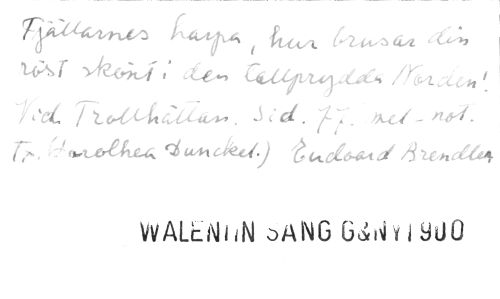 Fjällarnes harpa, hur brusar din
röst skönt i den tallprydda Norden!
Vid Trollhättan. Sid. 77. mel-not.
Tx. (Dorothea Dunckel.) Eduoard Brendler
WALENTIN SANG G&NY1900